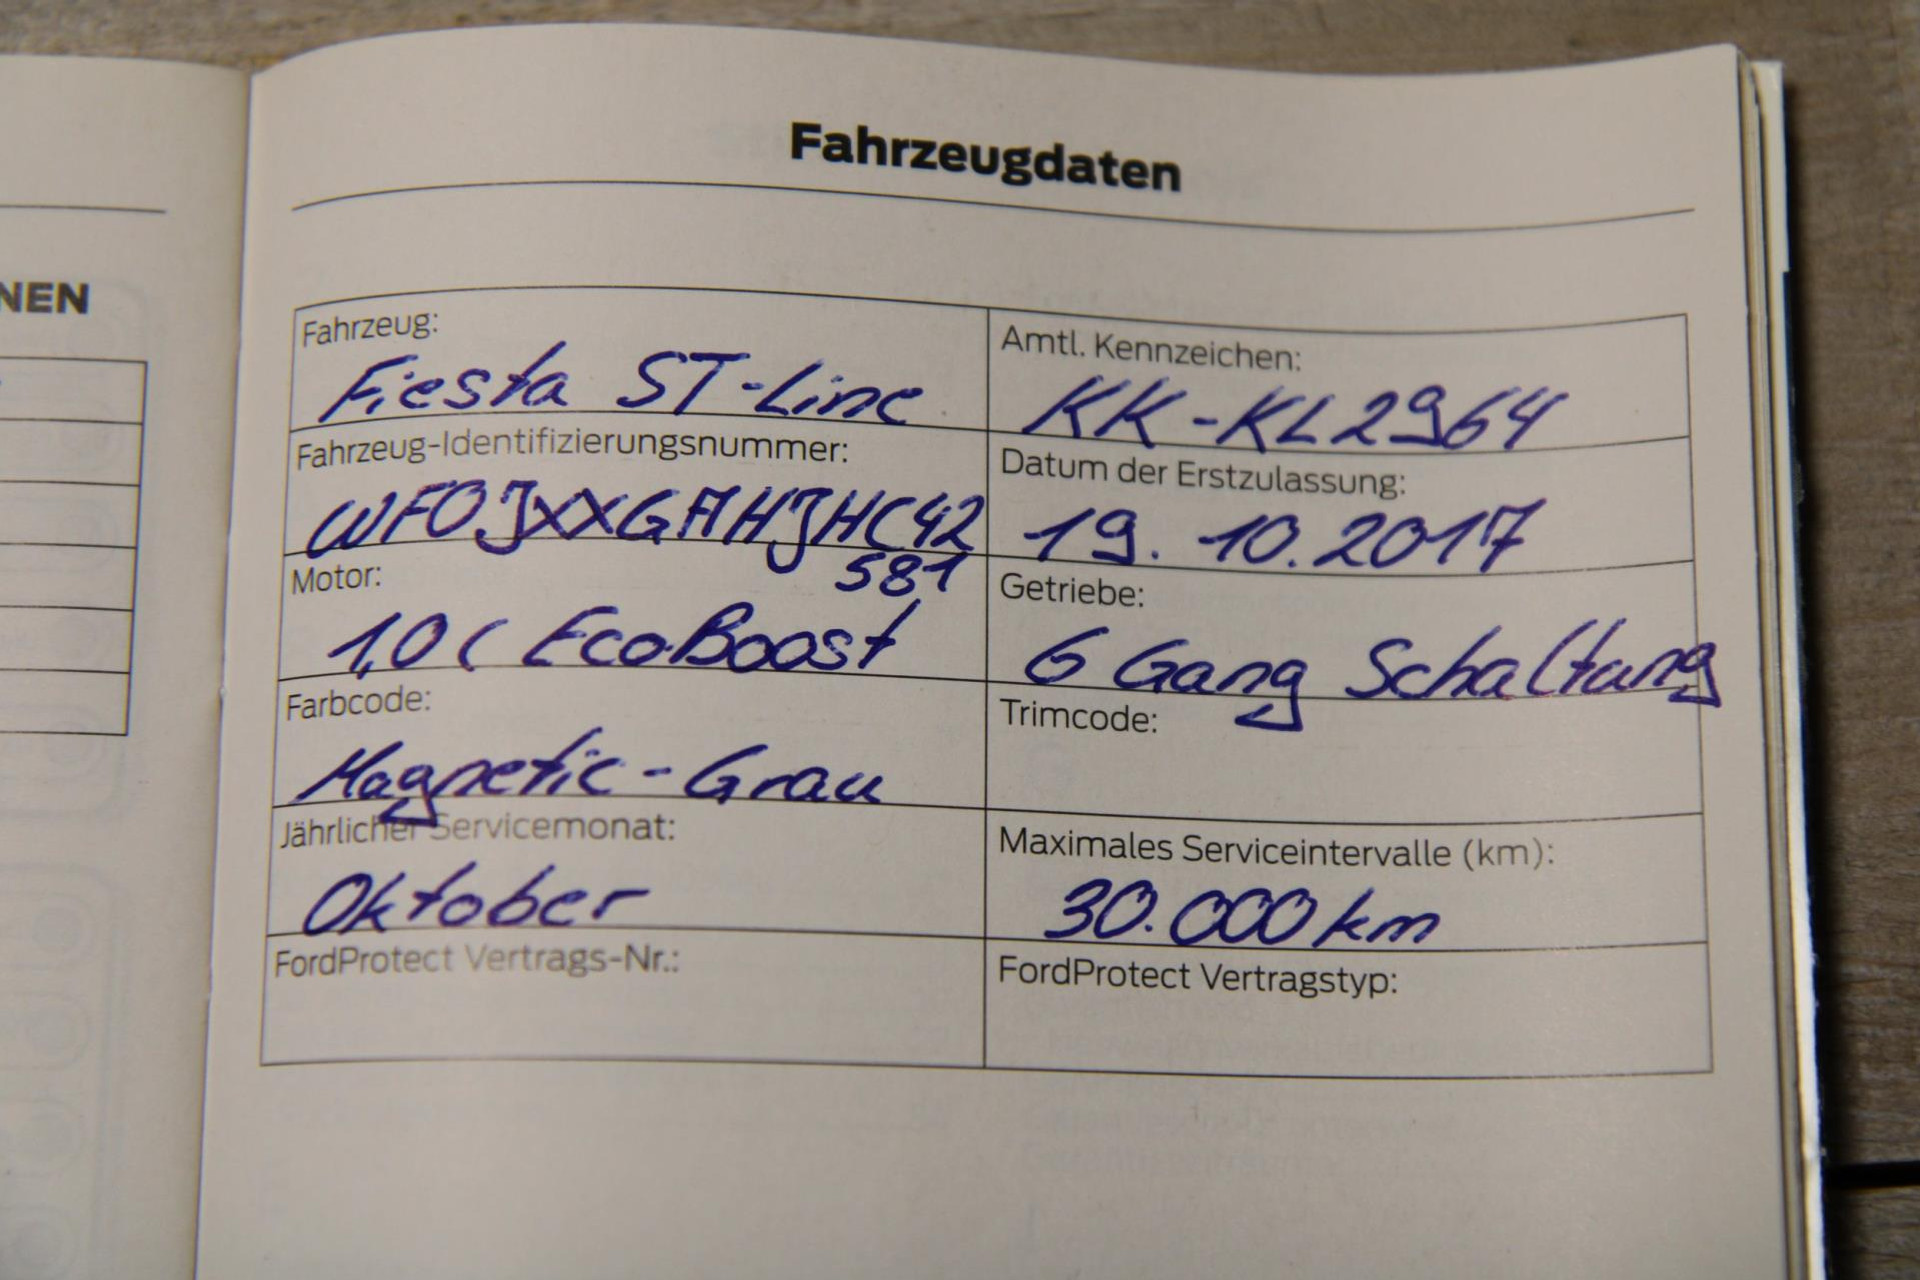 NEN
Fahrzeugdaten
Fahrzeug:
Fiesta ST-Line
Amtl. Kennzeichen:
KK-KL2964
Fahrzeug-Identifizierungsnummer:
WF0JXXGAHJHC42
581
Datum der Erstzulassung:
19.10.2017
Motor:
1,0l EcoBoost
Getriebe:
6 Gang Schaltung
Farbcode:
Magnetic-Grau
Trimcode:
Jährlicher Servicemonat:
Oktober
Maximales Serviceintervalle (km):
30.000 km
FordProtect Vertrags-Nr.:
FordProtect Vertragstyp: